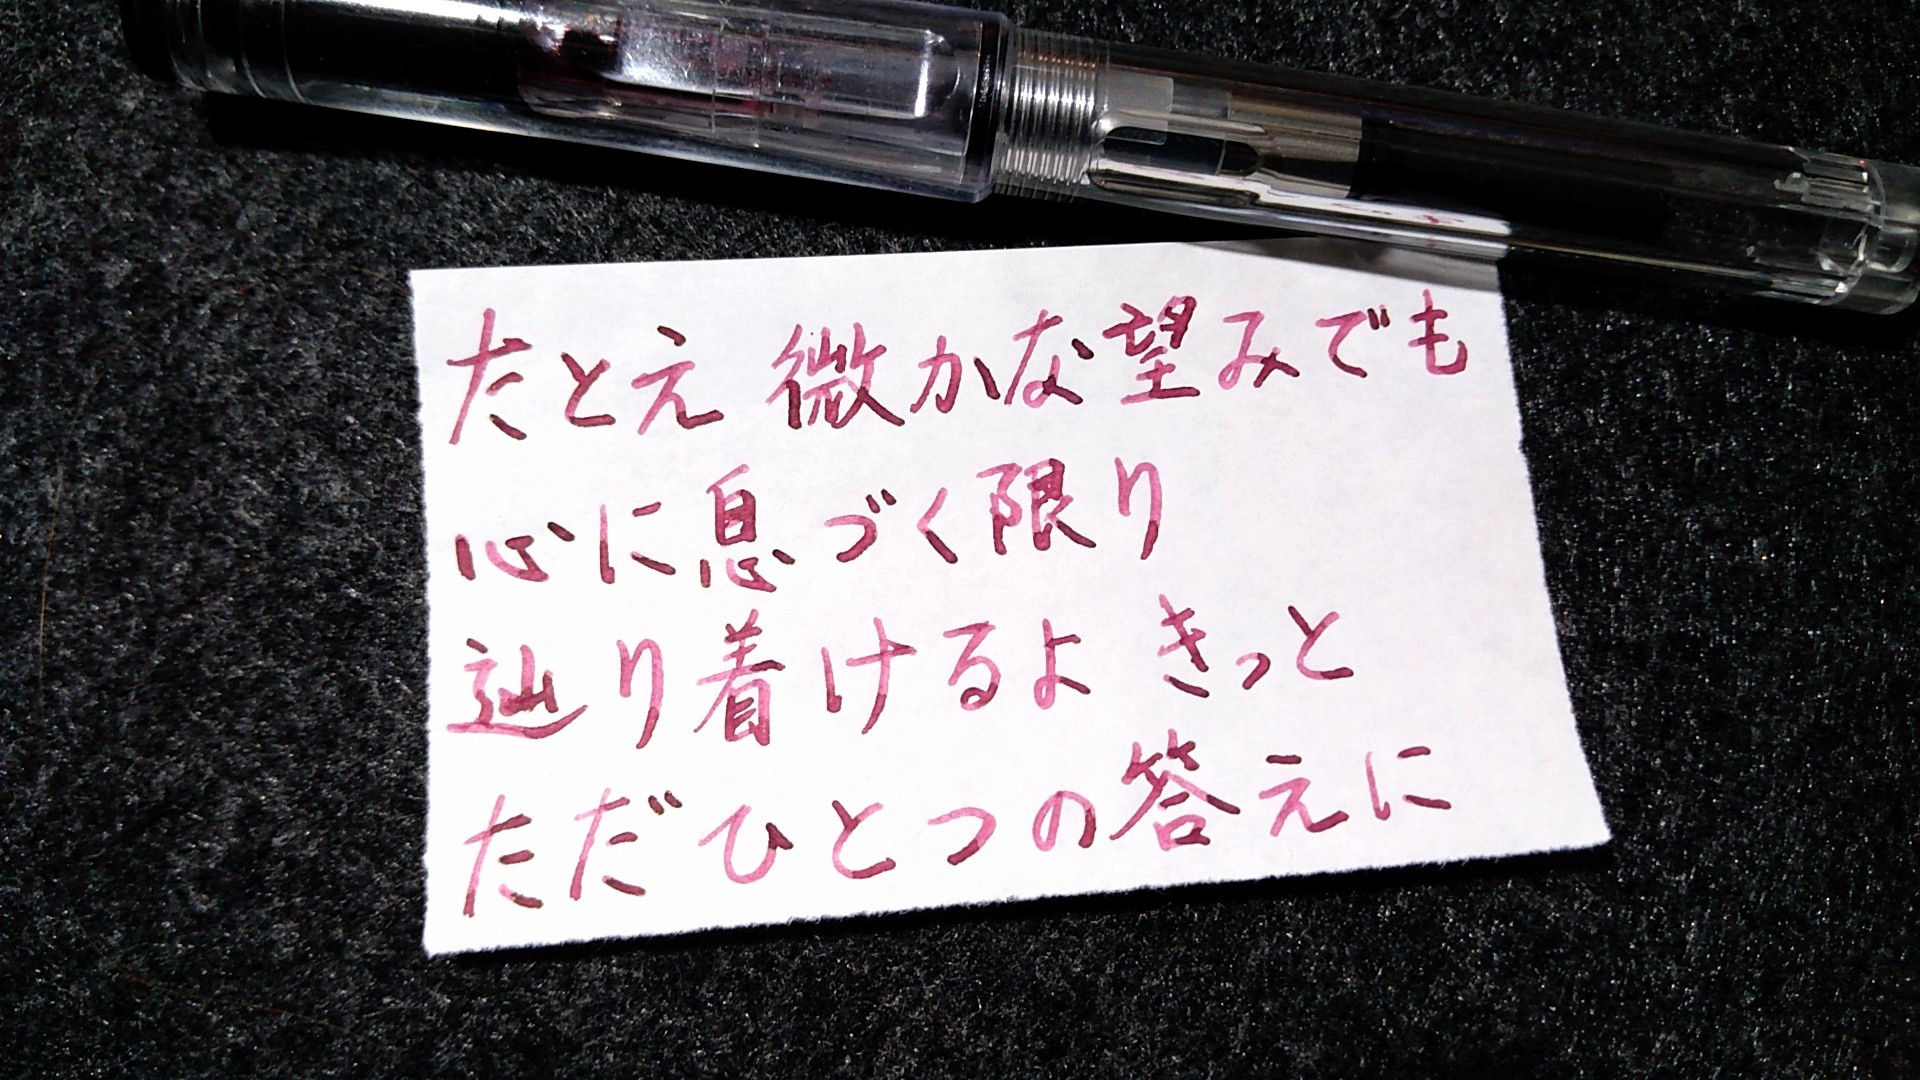 たとえ 微かな望みでも
心に息づく限り
辿り着けるよ きっと
ただひとつの答えに